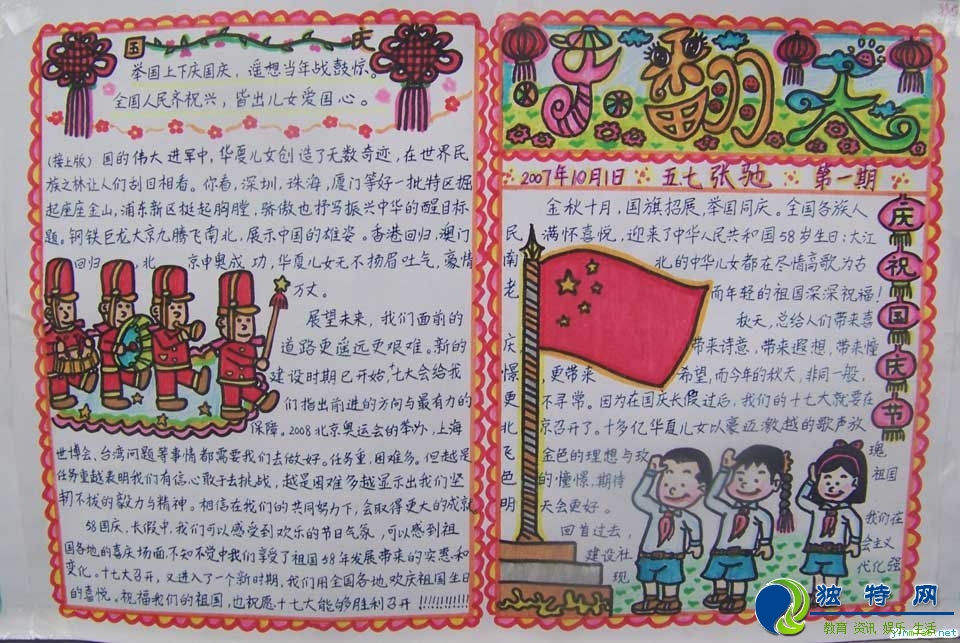 乐翻天
2007年10月1日 五.七 张驰 第一期
庆祝国庆节
金秋十月，国旗招展，举国同庆。全国各族人
民 满怀喜悦，迎来了中华人民共和国58岁生日；大江
南 北的中华儿女都在尽情高歌，为古
老 而年轻的祖国深深祝福！
秋天，总给人们带来喜
庆， 带来诗意，带来遐想，带来憧
憬，更带来 希望，而今年的秋天，非同一般，
更 不寻常。因为在国庆长假过后，我们的十七大就要在
北 京召开了。十多亿华夏儿女以豪迈激越的歌声放
飞 金色的理想与玫 瑰
色 的憧憬，期待 祖国
明 天会更好。
回首过去， 我们在
建设社 会主义
现 代化强
国 庆
举国上下庆国庆，遥想当年战鼓惊。
全国人民齐祝兴，皆出儿女爱国心。
(接上版) 国的伟大进军中，华夏儿女创造了无数奇迹，在世界民
族之林让人们刮目相看。你看，深圳，珠海，厦门等好一批特区掘
起座座金山，浦东新区挺起胸膛，骄傲也抒写振兴中华的醒目标
题。钢铁巨龙大京九腾飞南北，展示中国的雄姿。香港回归，澳门
回归 北 京申奥成功，华夏儿女无不扬眉吐气，豪情
万丈。
展望未来，我们面前的
道路更遥远更艰难。新的
建设时期已开始，十七大会给我
们指出前进的方向与最有力的
保障。2008北京奥运会的举办，上海
世博会，台湾问题等事情都需要我们去做好。任务重，困难多。但越是
任务重越表明我们有信心敢于去挑战，越是困难多越显示出我们坚
韧不拔的毅力与精神。相信在我们的共同努力下，会取得更大的成就
58国庆，长假中，我们可以感受到欢乐的节日气氛，可以感到祖
国各地的喜庆场面，不知不觉中我们享受了祖国58年发展带来的实惠和
变化。十七大召开，又进入了一个新时期，我们用全国各地欢庆祖国生日
的喜悦。祝福我们的祖国，也祝愿十七大能够胜利召开!!!!!!!!!!!!
独特网
教育 资讯 娱乐 生活
yinmian.net